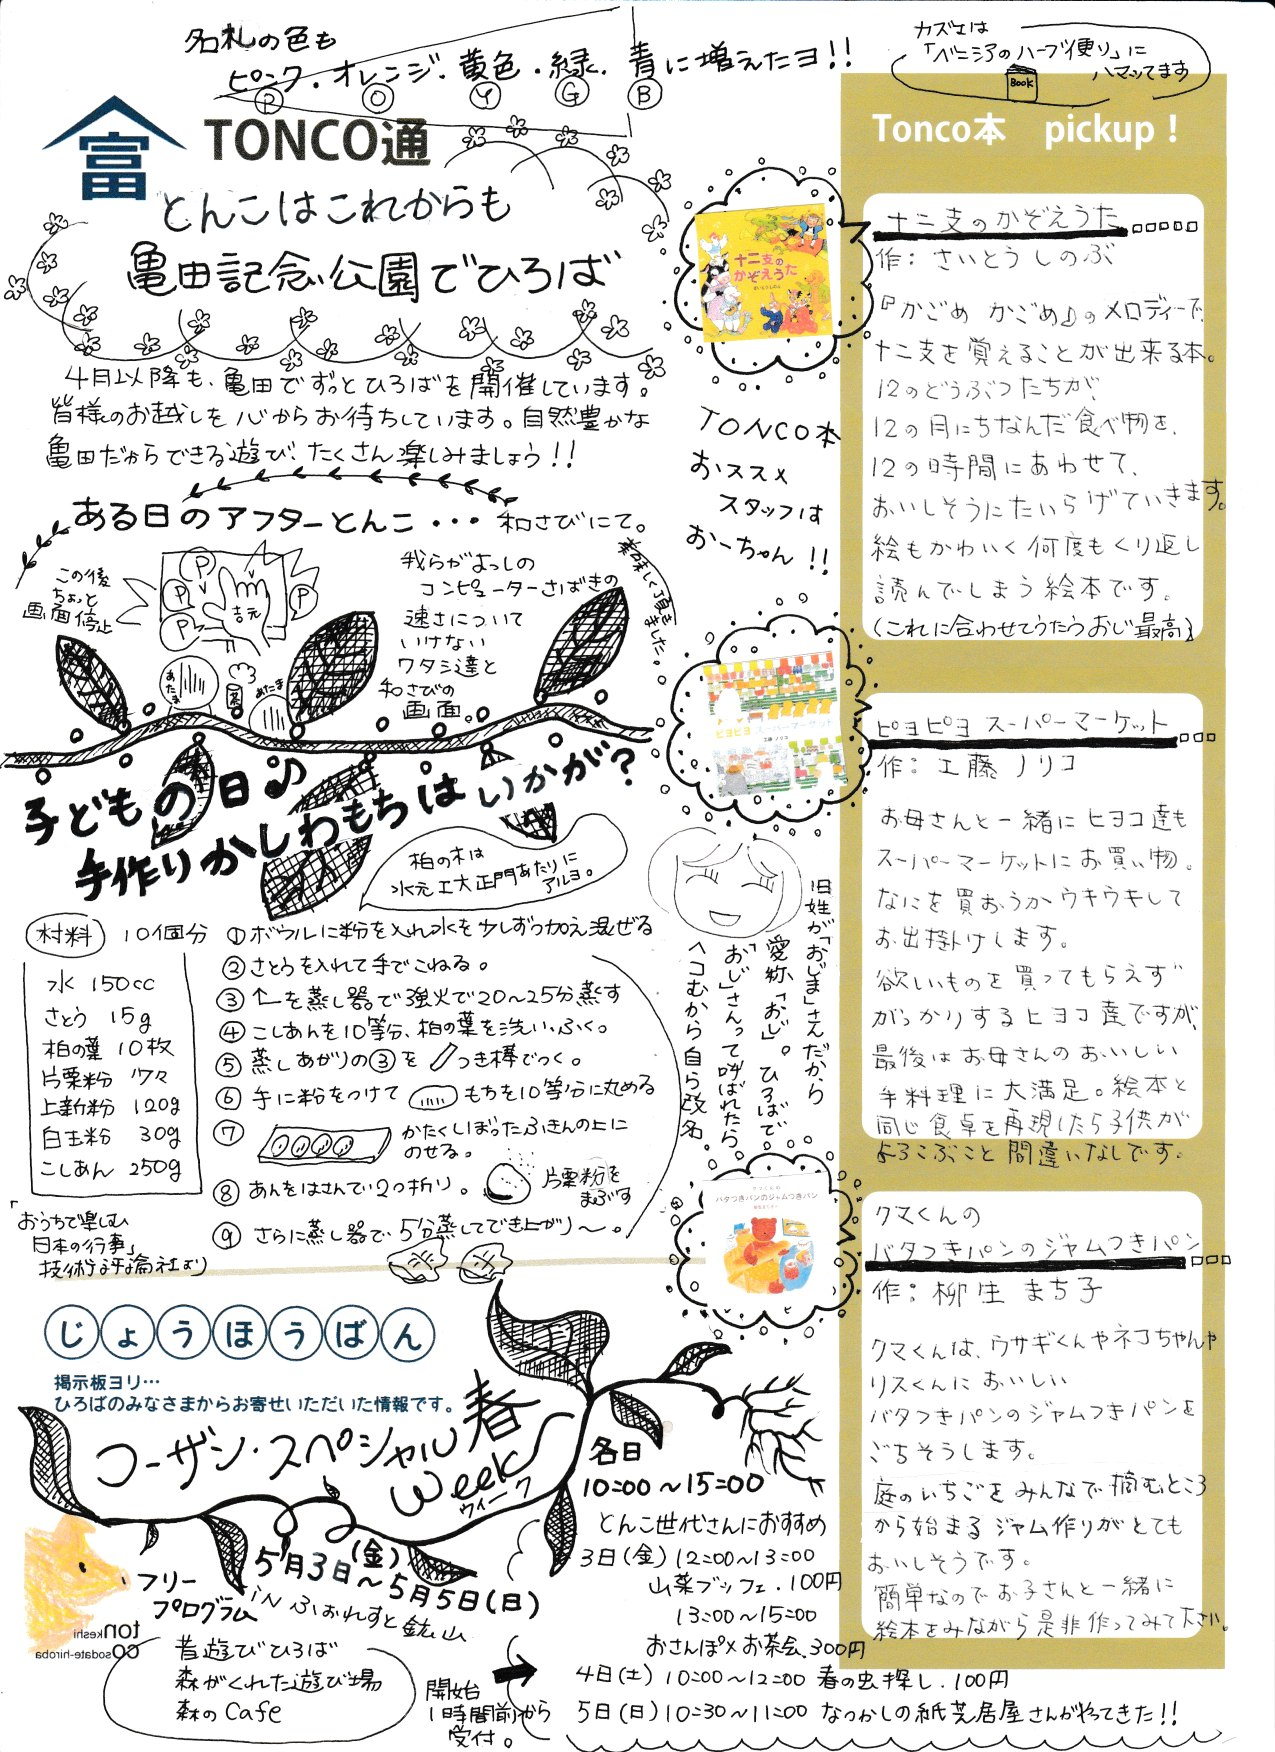 名札の色も
ピンク・オレンジ・黄色・緑・青に増えたヨ!!
P O Y G B
カズエは
「ベニシアのハーブ便り」に
ハマッてます
BOOK
富 TONCO通
とんこはこれからも
亀田記念公園でひろば
4月以降も、亀田でずっとひろばを開催しています。
皆様のお越しを心からお待ちしています。自然豊かな
亀田だからできる遊び、たくさん楽しみましょう!!
ある日のアフターとんこ・・・和さびにて。
この後
ちょっと
画面停止
P
P
P
P
吉元
あたま
茶
あたま
我らがよっしの
コンピューターさばきの
速さについて
いけない
ワタシ達と
和さびの
画面。
美味しく頂きました。
子どもの日♪
手作りかしわもちはいかが?
柏の木は
水元工大正門あたりに
アルヨ。
材料 10個分
水 150cc
さとう 15g
柏の葉 10枚
片栗粉 少々
上新粉 120g
白玉粉 30g
こしあん 250g
①ボウルに粉を入れ水を少しずつ加え混ぜる
②さとうを入れて手でこねる。
③↑を蒸し器で強火で20〜25分蒸す
④こしあんを10等分、柏の葉を洗い、ふく。
⑤蒸しあがりの③をつき棒でつく。
⑥手に粉をつけて もちを10等分に丸める
⑦かたくしぼったふきんの上に
のせる。
⑧あんをはさんで2つ折り。
片栗粉を
まぶす
⑨さらに蒸し器で5分蒸してでき上がり〜。
「おうちで楽しむ
日本の行事」
技術評論社より
TONCO本
おススメ
スタッフは
おーちゃん!!
旧姓が「おじま」さんだから
愛称、「おじ」。ひろばで
「おじ」さんって呼ばれたら、
ヘコむから自ら改名。
十二支の
かぞえうた
さいとうしのぶ
ピヨピヨ スーパーマーケット
工藤ノリコ
バタつきパンのジャムつきパン
Tonco本 pickup!
十二支のかぞえうた
作:さいとうしのぶ
『かごめ かごめ♪』のメロディーで、
十二支を覚えることが出来る本。
12のどうぶつたちが、
12の月にちなんだ食べ物を、
12の時間にあわせて、
おいしそうにたいらげていきます。
絵もかわいく何度もくり返し
読んでしまう絵本です。
(これに合わせてうたうおじ最高)
ピヨピヨ スーパーマーケット
作:工藤ノリコ
お母さんと一緒にヒヨコ達も
スーパーマーケットにお買い物。
なにを買おうかウキウキして
お出掛けします。
欲しいものを買ってもらえず
がっかりするヒヨコ達ですが、
最後はお母さんのおいしい
手料理に大満足。絵本と
同じ食卓を再現したら子供が
よろこぶこと間違いなしです。
クマくんの
バタつきパンのジャムつきパン
作:柳生まち子
クマくんは、ウサギくんやネコちゃんや
リスくんにおいしい
バタつきパンのジャムつきパンを
ごちそうします。
庭のいちごをみんなで摘むところ
から始まるジャム作りがとても
おいしそうです。
簡単なのでお子さんと一緒に
絵本をみながら是非作ってみて下さい。
じょうほうばん
掲示板ヨリ…
ひろばのみなさまからお寄せいただいた情報です。
コーザン・スペシャル春
Week
ウィーク
5月3日(金)〜5月5日(日)
in ふぉれすと鉱山
各日
10:00〜15:00
フリー
プログラム
昔遊びひろば
森がくれた遊び場
森のCafe
tonkeshi
cosodate-hiroba
開始
1時間前から
受付。
とんこ世代さんにおすすめ
3日(金)12:00〜13:00
山菜ブッフェ.100円
13:00〜15:00
おさんぽ×お茶会.300円
4日(土)10:00〜12:00 春の虫探し.100円
5日(日)10:30〜11:00 なつかしの紙芝居屋さんがやってきた!!